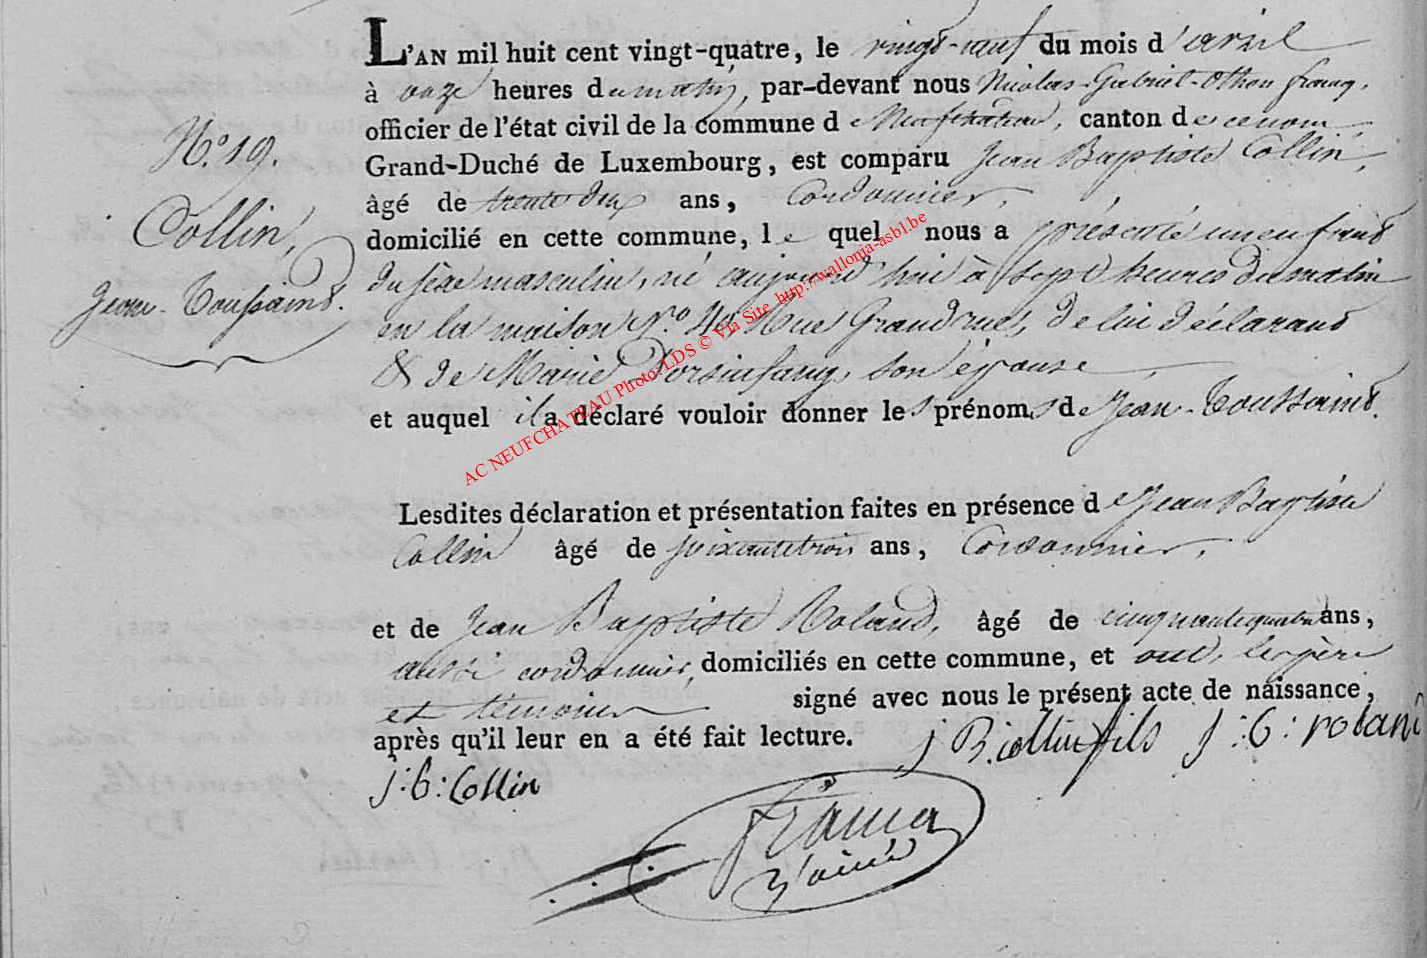 L'AN mil huit cent vingt-quatre, le vingt-neuf du mois d'avril
à onze heures du matin, par-devant nous Nicolas-Gabriel-Othon
officier de l'état civil de la commune de Neufchateau, canton de ce nom,
N.o 19.
Grand-Duché de Luxembourg, est comparu Jean Baptiste Collin,
âgé de trente deux ans, Cordonnier,
Collin,
domicilié en cette commune, le quel nous a présenté un enfant
du sèxe masculin, né aujourd'hui à sept heures du matin
Jean-Toussaint.
en la maison N.o Rue Grandrue, de lui déclarant
& de Marie son épouse
et auquel il a déclaré vouloir donner les prénoms de Jean-Toussaint.
AC NEUFCHATEAU Photo: LDS © Via Site http://wallonia-asbl.be
Lesdites déclaration et présentation faites en présence de Jean Baptiste
Collin âgé de soixantetrois ans, Cordonnier,
et de Jean Baptiste Roland, âgé de cinquantequatre ans,
aussi cordonnier, domiciliés en cette commune, et ont, les père
et témoins signé avec nous le présent acte de naissance,
après qu'il leur en a été fait lecture. J B. collin fils J:B: rolan
J:B: Collin